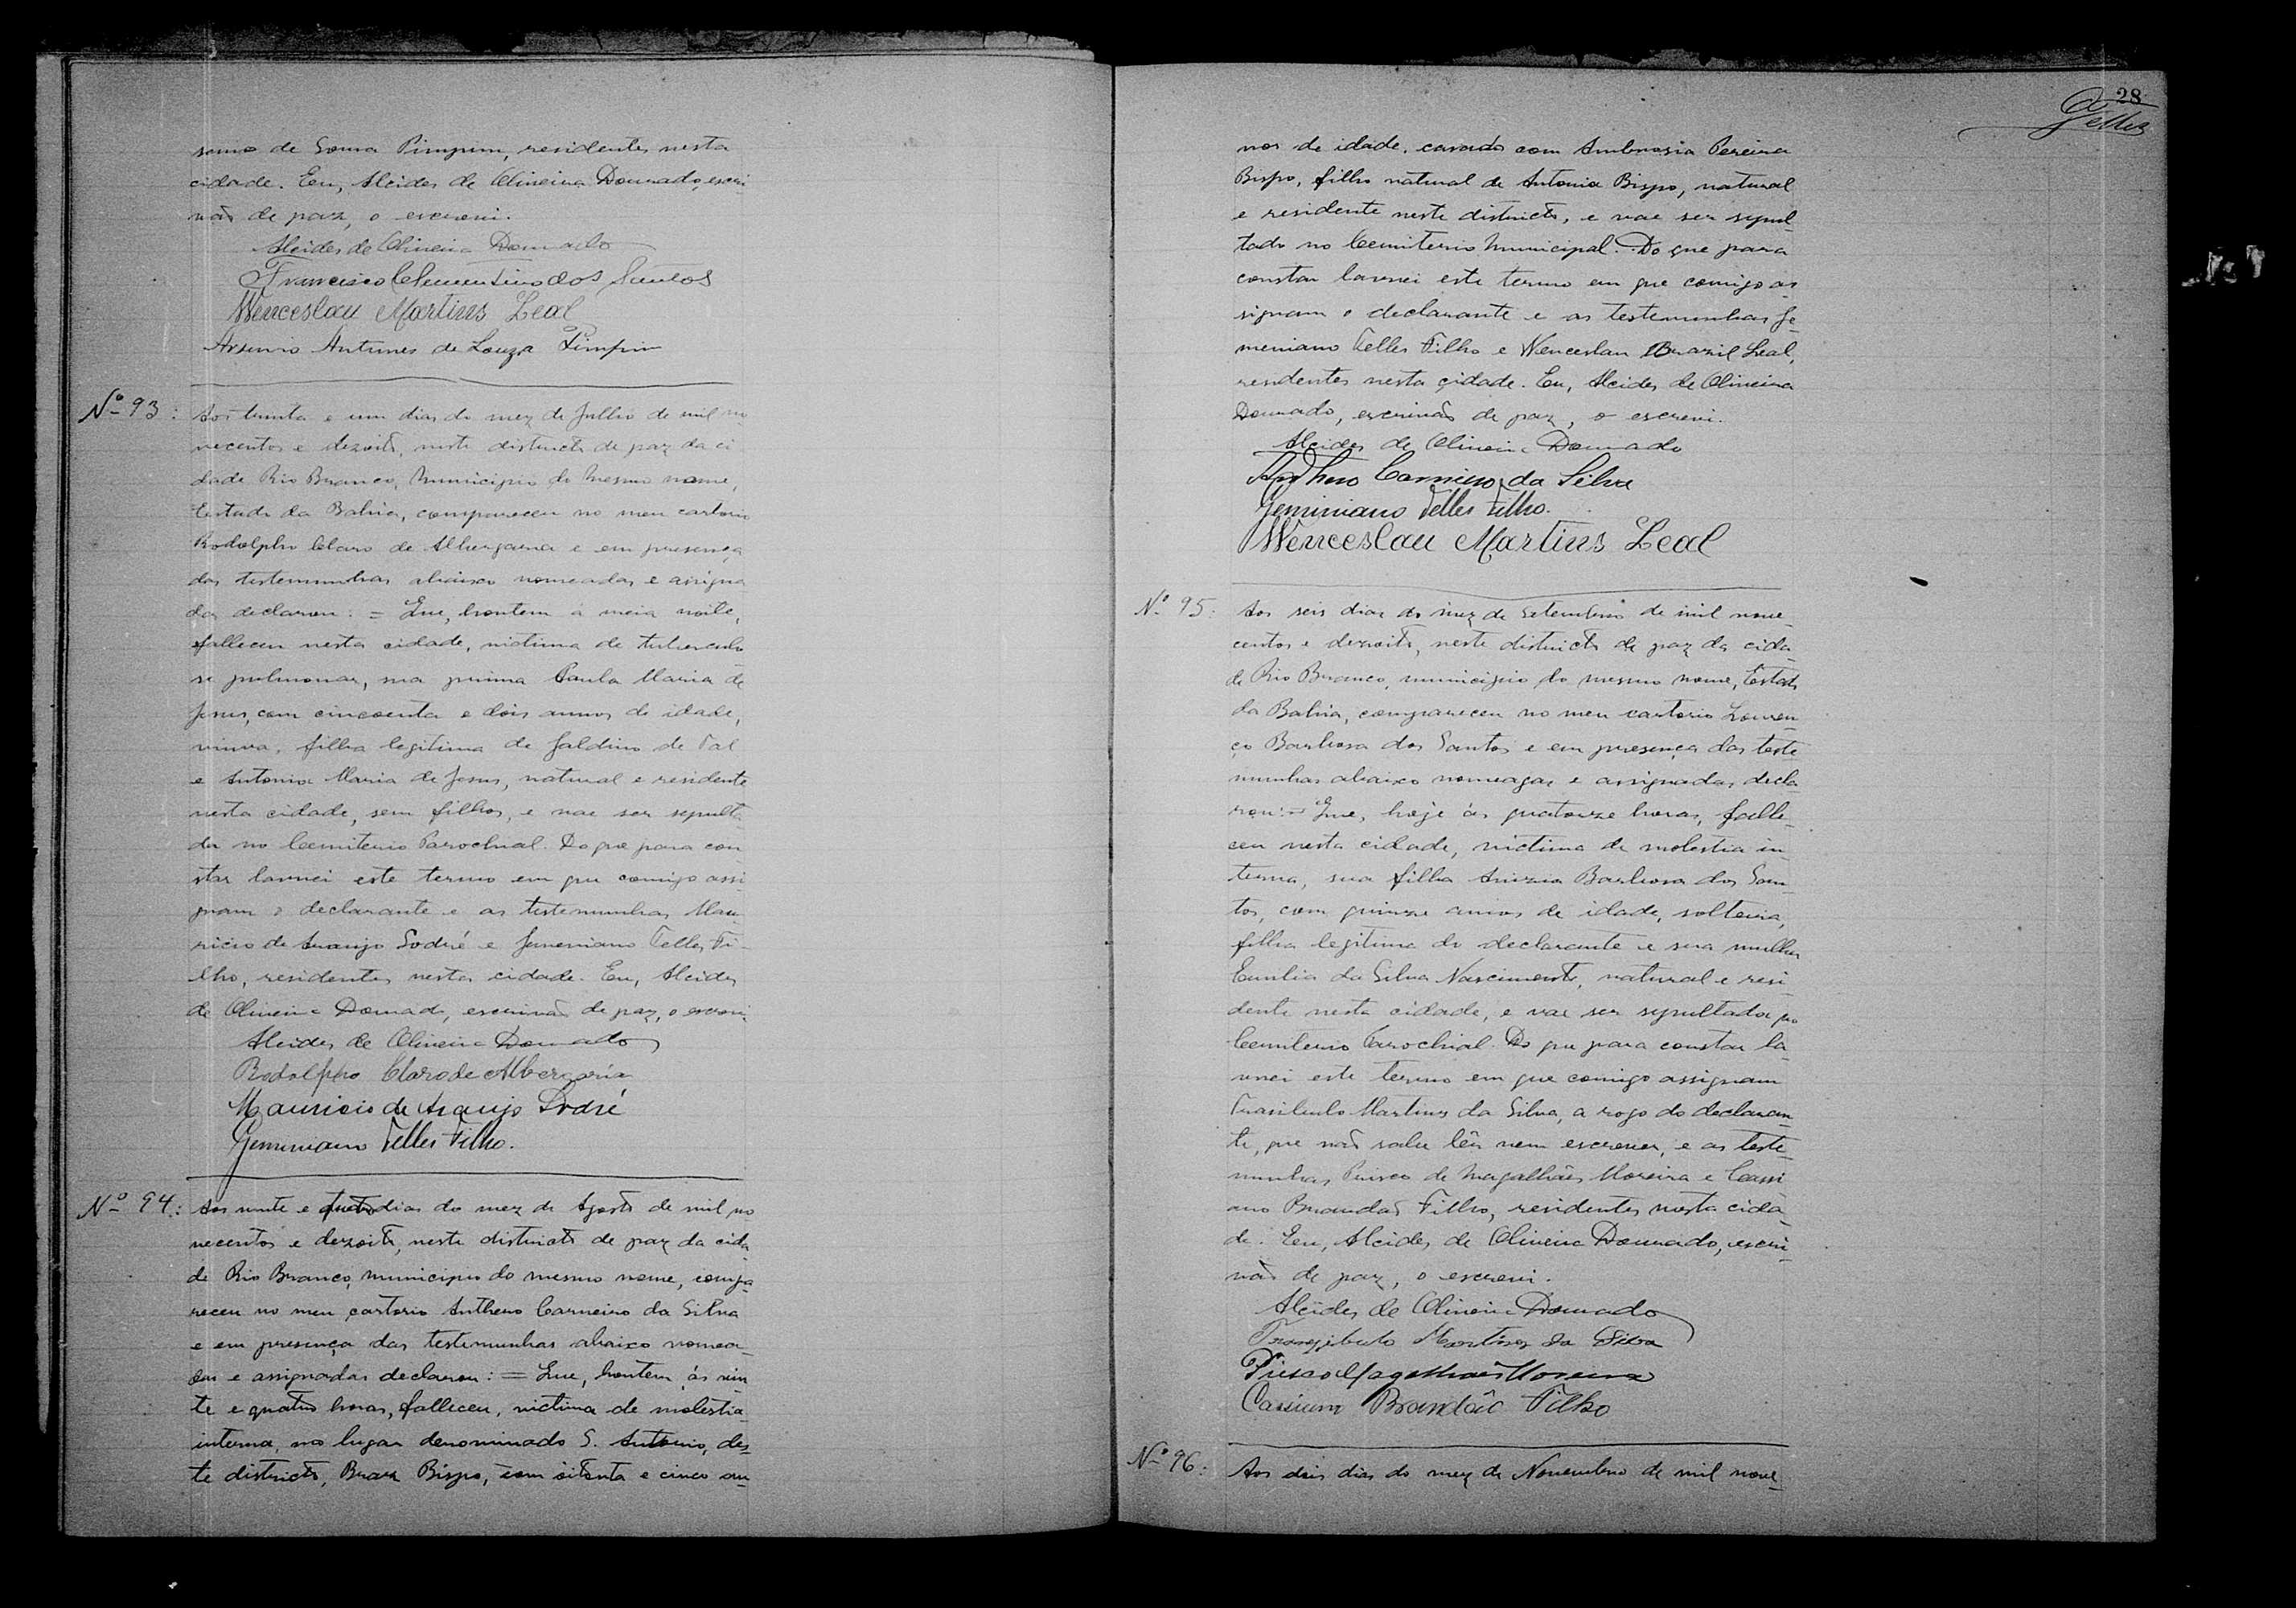 de Souza Pimpim, residentes nesta
cidade. Eu, Alcides de Oliveira Dourado, escri
vão de paz, o escrevi.
Alcides de Oliveira Dourado
Francisco Clementino dos Santos
Wenceslau Martins Leal
Arsenio Antunes de Souza Pimpim
Nº 93:
Aos trinta e um dias do mez de Julho de mil no
vecentos e dezoito, neste districto de paz da ci
dade Rio Branco, Municipio do mesmo nome,
Estado da Bahia, compareceu no meu cartorio
Rodolpho Claro de Albergaria e em presença
das testemunhas abaixo nomeadas e assigna
das declarou: = Que, hontem á meia noite,
falleceu nesta cidade, victima de tuberculo
se pulmonar, sua prima Paula Maria de
Jesus, com cincoenta e dois annos de idade,
viuva, filha legitima de Galdino de Tal
e Antonia Maria de Jesus, natural e residente
nesta cidade, sem filhos, e vae ser sepulta
da no Cemiterio Parochial. Do que para con
star lavrei este termo em que comigo assi
gnam o declarante e as testemunhas Mau
ricio de Araujo Sodré e Geminiano Telles Fi-
lho, residentes nesta cidade. Eu, Alcides
de Oliveira Dourado, escrivão de paz, o escrevi
Alcides de Oliveira Dourado
Rodolpho Claro de Albergaria
Mauricio de Araujo Sodré
Geminiano Telles Filho.
Nº 94:
Aos vinte e quatro dias do mez de Agosto de mil no
vecentos e dezoito, neste districto de paz da cida
de Rio Branco, municipio do mesmo nome, compa
receu no meu cartorio Anthero Carneiro da Silva
e em presença das testemunhas abaixo nomea-
das e assignadas declarou: = Que, hontem, ás vin
te e quatro horas, falleceu, victima de molestia
interna, no lugar denominado S. Antonio, des-
te districto, Braz Bispo, com oitenta e cinco an-
28
Telles
nos de idade, casado com Ambrosia Pereira
Bispo, filho natural de Antonia Bispo, natural
e residente neste districto, e vae ser sepul
tado no Cemiterio Municipal. Do que para
constar lavrei este termo em que comigo as
signam o declarante e as testemunhas Ge-
meniano Telles Filho e Wenceslau Brazil Leal,
residentes nesta cidade. Eu, Alcides de Oliveira
Dourado, escrivão de paz, o escrevi.
Alcides de Oliveira Dourado
Anthero Carneiro da Silva
Geminiano Telles Filho.
Wenceslau Martins Leal
Nº 95:
Aos seis dias do mez de Setembro de mil nove-
centos e dezoito, neste districto de paz da cida-
de Rio Branco, municipio do mesmo nome, Estado
da Bahia, compareceu no meu cartorio Louren-
ço Barbosa dos Santos e em presença das teste
munhas abaixo nomeagas e assignadas decla
rou: = Que, hoje ás quatorze horas, falle-
ceu nesta cidade, victima de molestia in-
terna, sua filha Barbosa dos San-
tos, com quinze annos de idade, solteira,
filha legitima do declarante e sua mulher
Emilia da Silva Nascimento, natural e resi
dente nesta cidade, e vae ser sepultada no
Cemiterio Parochial. Do que para constar la-
vrei este termo em que comigo assignam
Martins da Silva, a rogo do declaran-
te, que não sabe lêr nem escrever, e as teste-
munhas Prisco de Magalhães Moreira e Cassi
ano Brandão Filho, residentes nesta cida-
de. Eu, Alcides de Oliveira Dourado, escri-
vão de paz, o escrevi.
Alcides de Oliveira Dourado
Martins da Silva
Prisco Magalhães Moreira
Cassiano Brandão Filho
Nº 96:
Aos dois dias do mez de Novembro de mil nove-